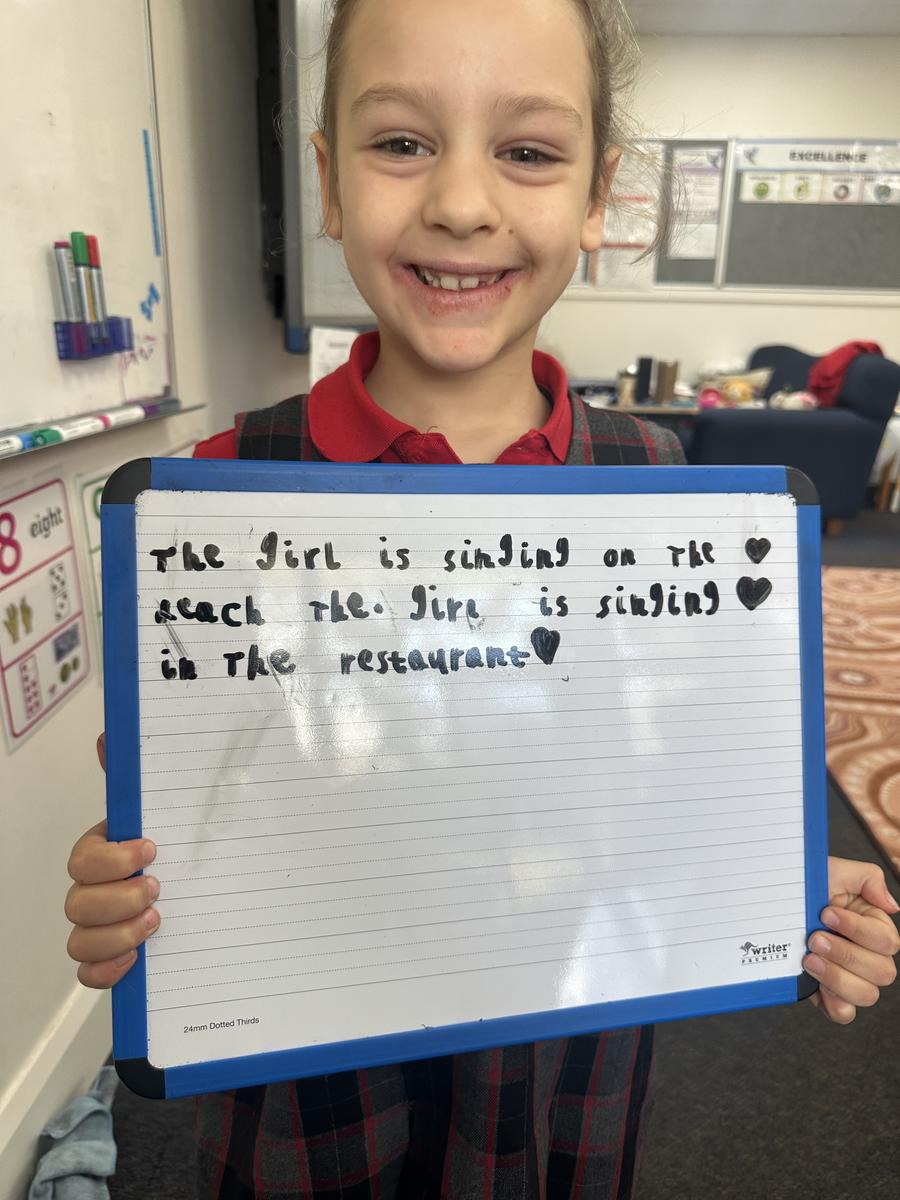 The girl is singing on the ♥
beach The. girl is singing ♥
in The restaurant ♥
writer
PREMIUM
24mm Dotted Thirds
EXCELLENCE
8 eight